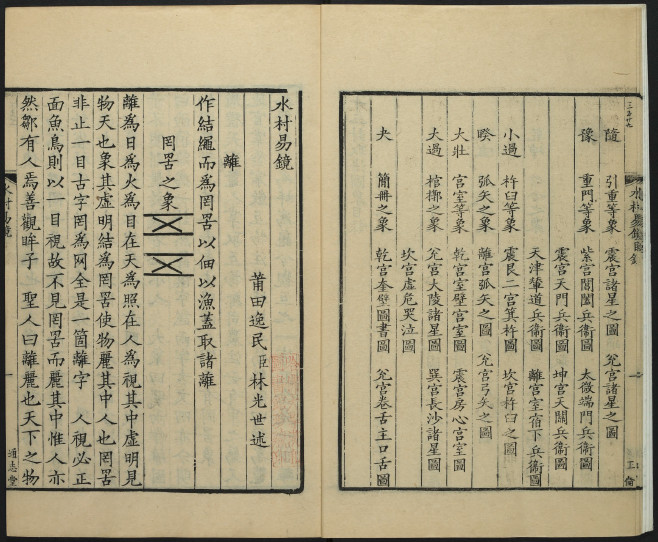 隨 引重等象 震宫諸星之圖 兊宫諸星之圖
豫 重門等象 紫宫閶闔兵衞圖 太微端門兵衞圖
震宫天門兵衞圖 坤宫天闕兵衞圖
天津輦道兵衞圖 離宫室宿下兵衞圖
小過 杵臼等象 震艮二宫箕杵圖 坎宫杵臼之圖
睽 弧矢之象 離宫弧矢之圖 兊宫弓矢之圖
大壯 宫室等象 乾宫室壁宫室圖 震宫房心宫室圖
大過 棺槨之象 兊宫大陵諸星圖 巽宫長沙諸星圖
坎宫虚危哭泣圖
夬 簡冊之象 乾宫奎壁圖書圖 兊宫卷舌主口舌圖
水村易鏡
莆田逸民臣林光世述
離
作結繩而為罔罟以佃以漁蓋取諸離
罔罟之象
離為日為火為目在天為照在人為視其中虚明見
物天也象其虚明結為罔罟使物麗其中人也罔罟
非止一目古字罔為网全是一箇離字 人視必正
面魚鳥則以一目視故不見罔罟而麗其中惟人亦
然鄒有人焉善觀眸子 聖人曰離麗也天下之物
水村易鏡
一
通志堂